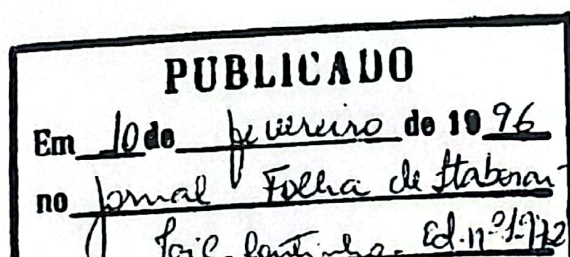 PUBLICADO
Em 10 de fevereiro de 1996
no Jornal Folha de Itaboraí
Ed. nº